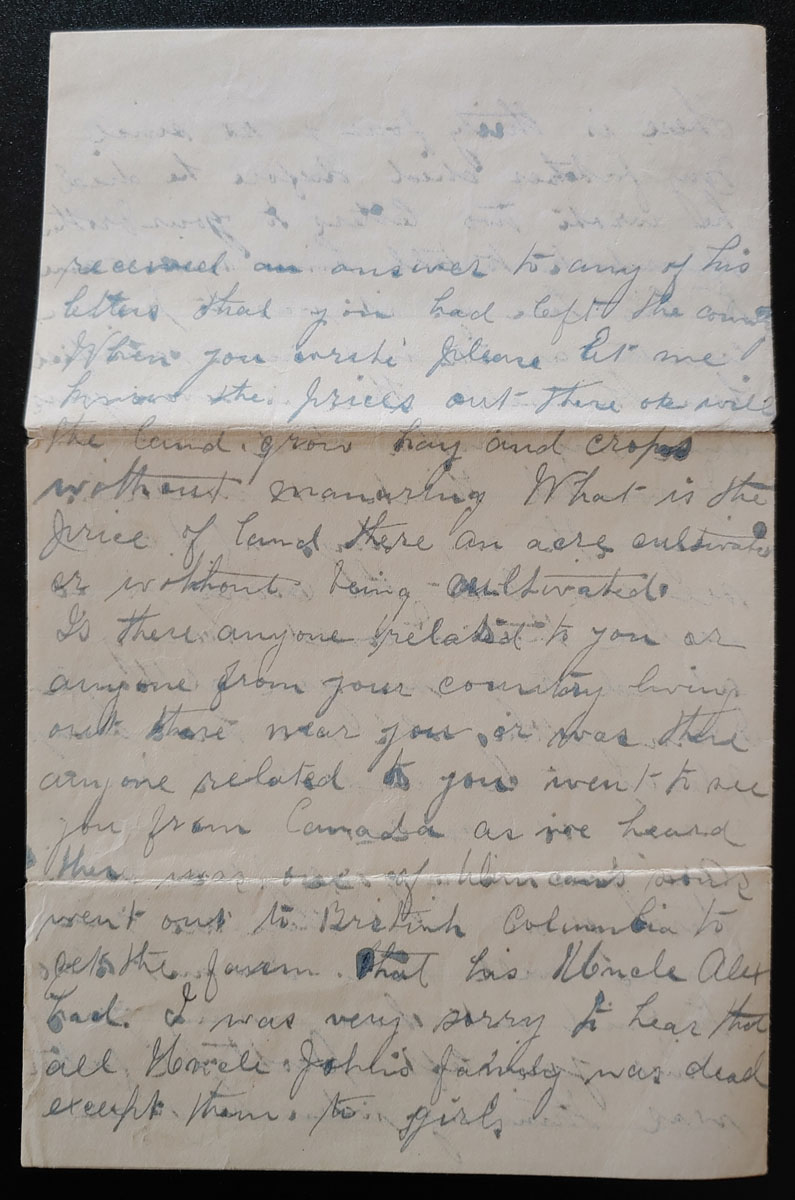 received an answer to any of his
letters that you had left the country
When you write please let me
know the prices out there or will
the land grow hay and crops
without manuring What is the
price of land there an acre cultivated
or without being cultivated.
Is there anyone related to you or
anyone from your country living
out there near you or was there
anyone related to you went to see
you from Canada as we heard
ther was one of Duncan's sons
went out to British Columbia to
get the farm. that his Uncle Alex
had. I was very sorry to hear that
all Uncle John's family was dead
except them to girls